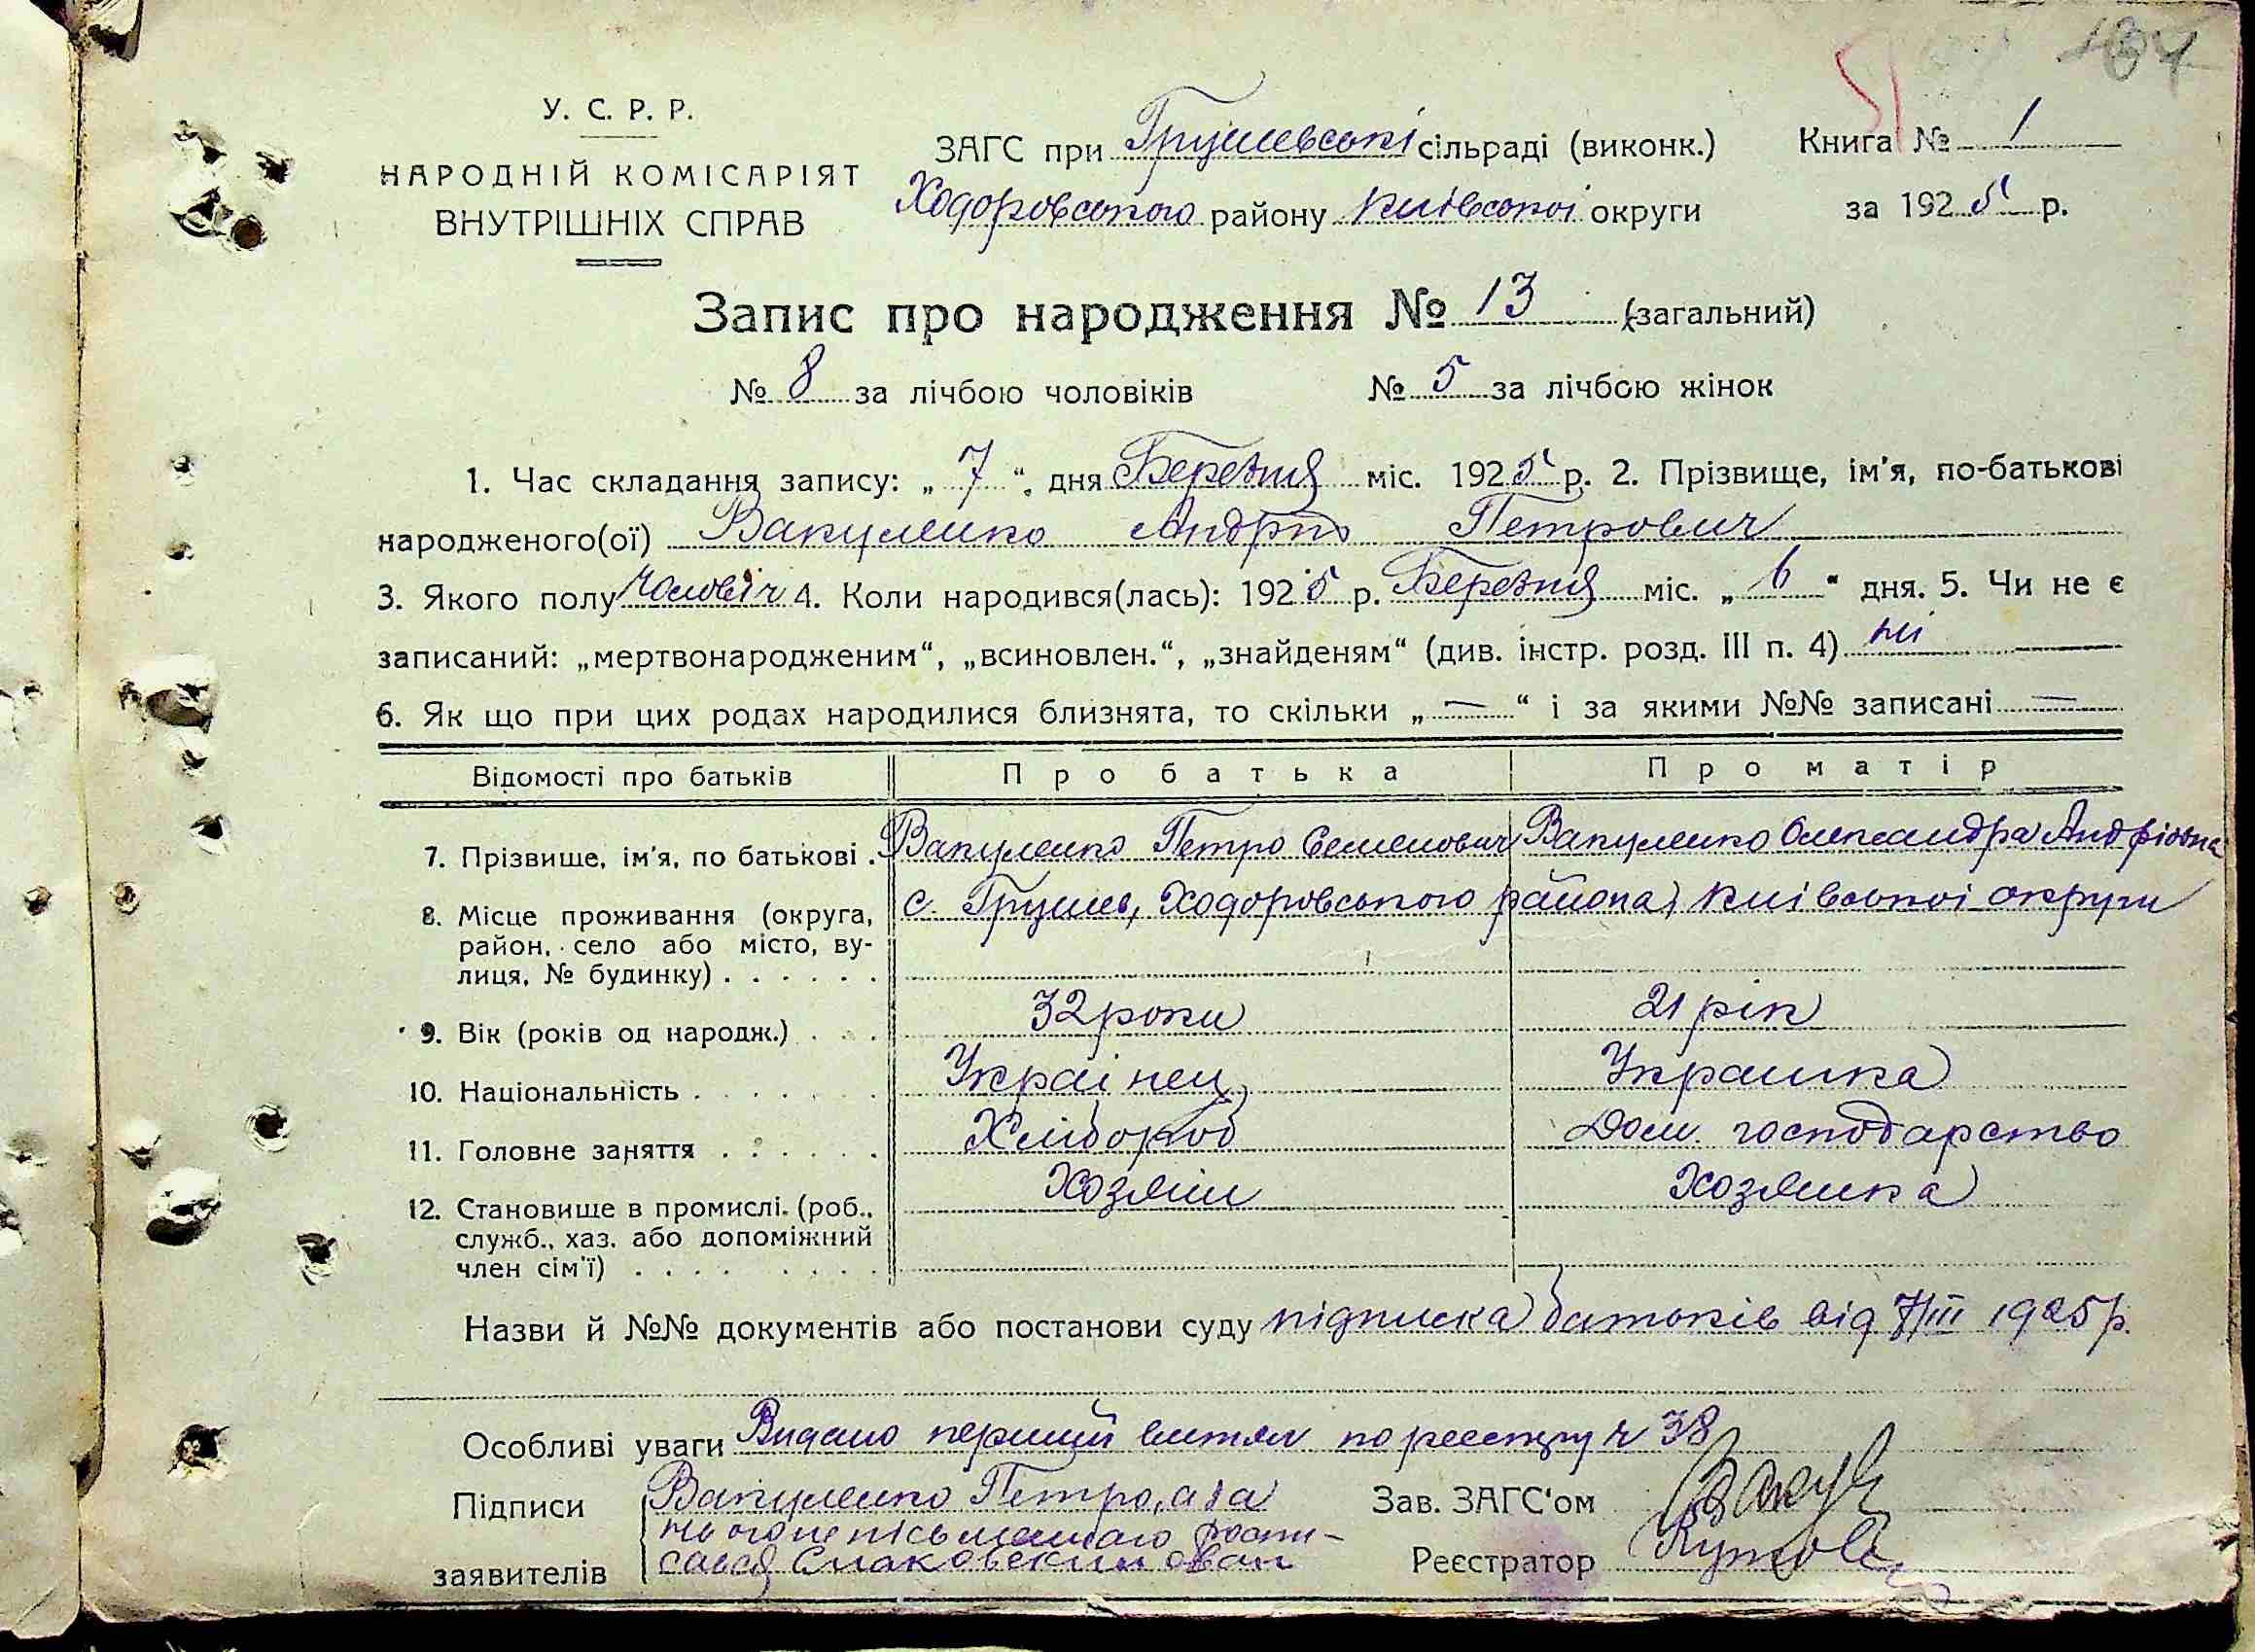 У. С. Р. Р.
НАРОДНІЙ КОМІСАРІЯТ
ВНУТРІШНІХ СПРАВ
ЗАГС при Грушевські сільраді (виконк.)
Ходоровського району Київської округи
Книга № 1
за 1925 р.
Запис про народження № 13 (загальний)
№ 8 за лічбою чоловіків № 5 за лічбою жінок
1. Час складання запису: „ 7 “ дня Березня міс. 1925 р. 2. Прізвище, ім'я, по-батькові
народженого(ої) Вакуленко Андрій Петрович
3. Якого полу чоловіч 4. Коли народився(лась): 1925 р. Березня міс. „ 6 “ дня. 5. Чи не є
записаний: „мертвонародженим“, „всиновлен.“, „знайденям“ (див. інстр. розд. III п. 4) ні
6. Як що при цих родах народилися близнята, то скільки „ — “ і за якими №№ записані —
Відомості про батьків Про батька Про матір
7. Прізвище, ім'я, по батькові . Вакуленко Петро Семенович Вакуленко Олександра Андріівна
8. Місце проживання (округа, с. Грушев, Ходоровського района, Київської округи
район, село або місто, ву-
лиця, № будинку) . . . . . .
9. Вік (років од народж.) . . . 32 роки 21 рік
10. Національність . . . . . . . Українец Украинка
11. Головне заняття . . . . . . Хлібороб Дом. господарство
12. Становище в промислі. (роб., Хозяин Хозяика
служб., хаз. або допоміжний
член сім'ї) . . . . . . . .
Назви й №№ документів або постанови суду підписка батьків від 7/III 1925 р.
Особливі уваги Видано перший витяг по реєстру ч 38
Підписи Вакуленко Петро, а за
нього неписьменного роспи-
заявителів сався
Зав. ЗАГС'ом
Реєстратор